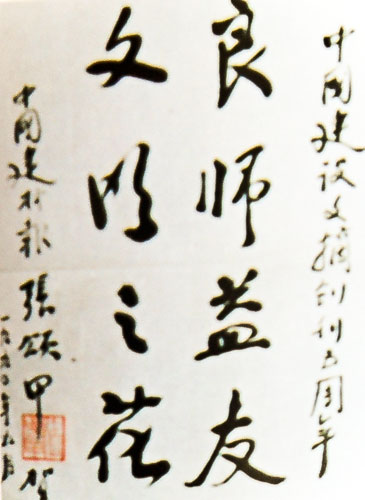 中国建设文摘创刊五周年
良师益友
文明之花
中国建材报 张颂甲 贺
一九九〇年五月